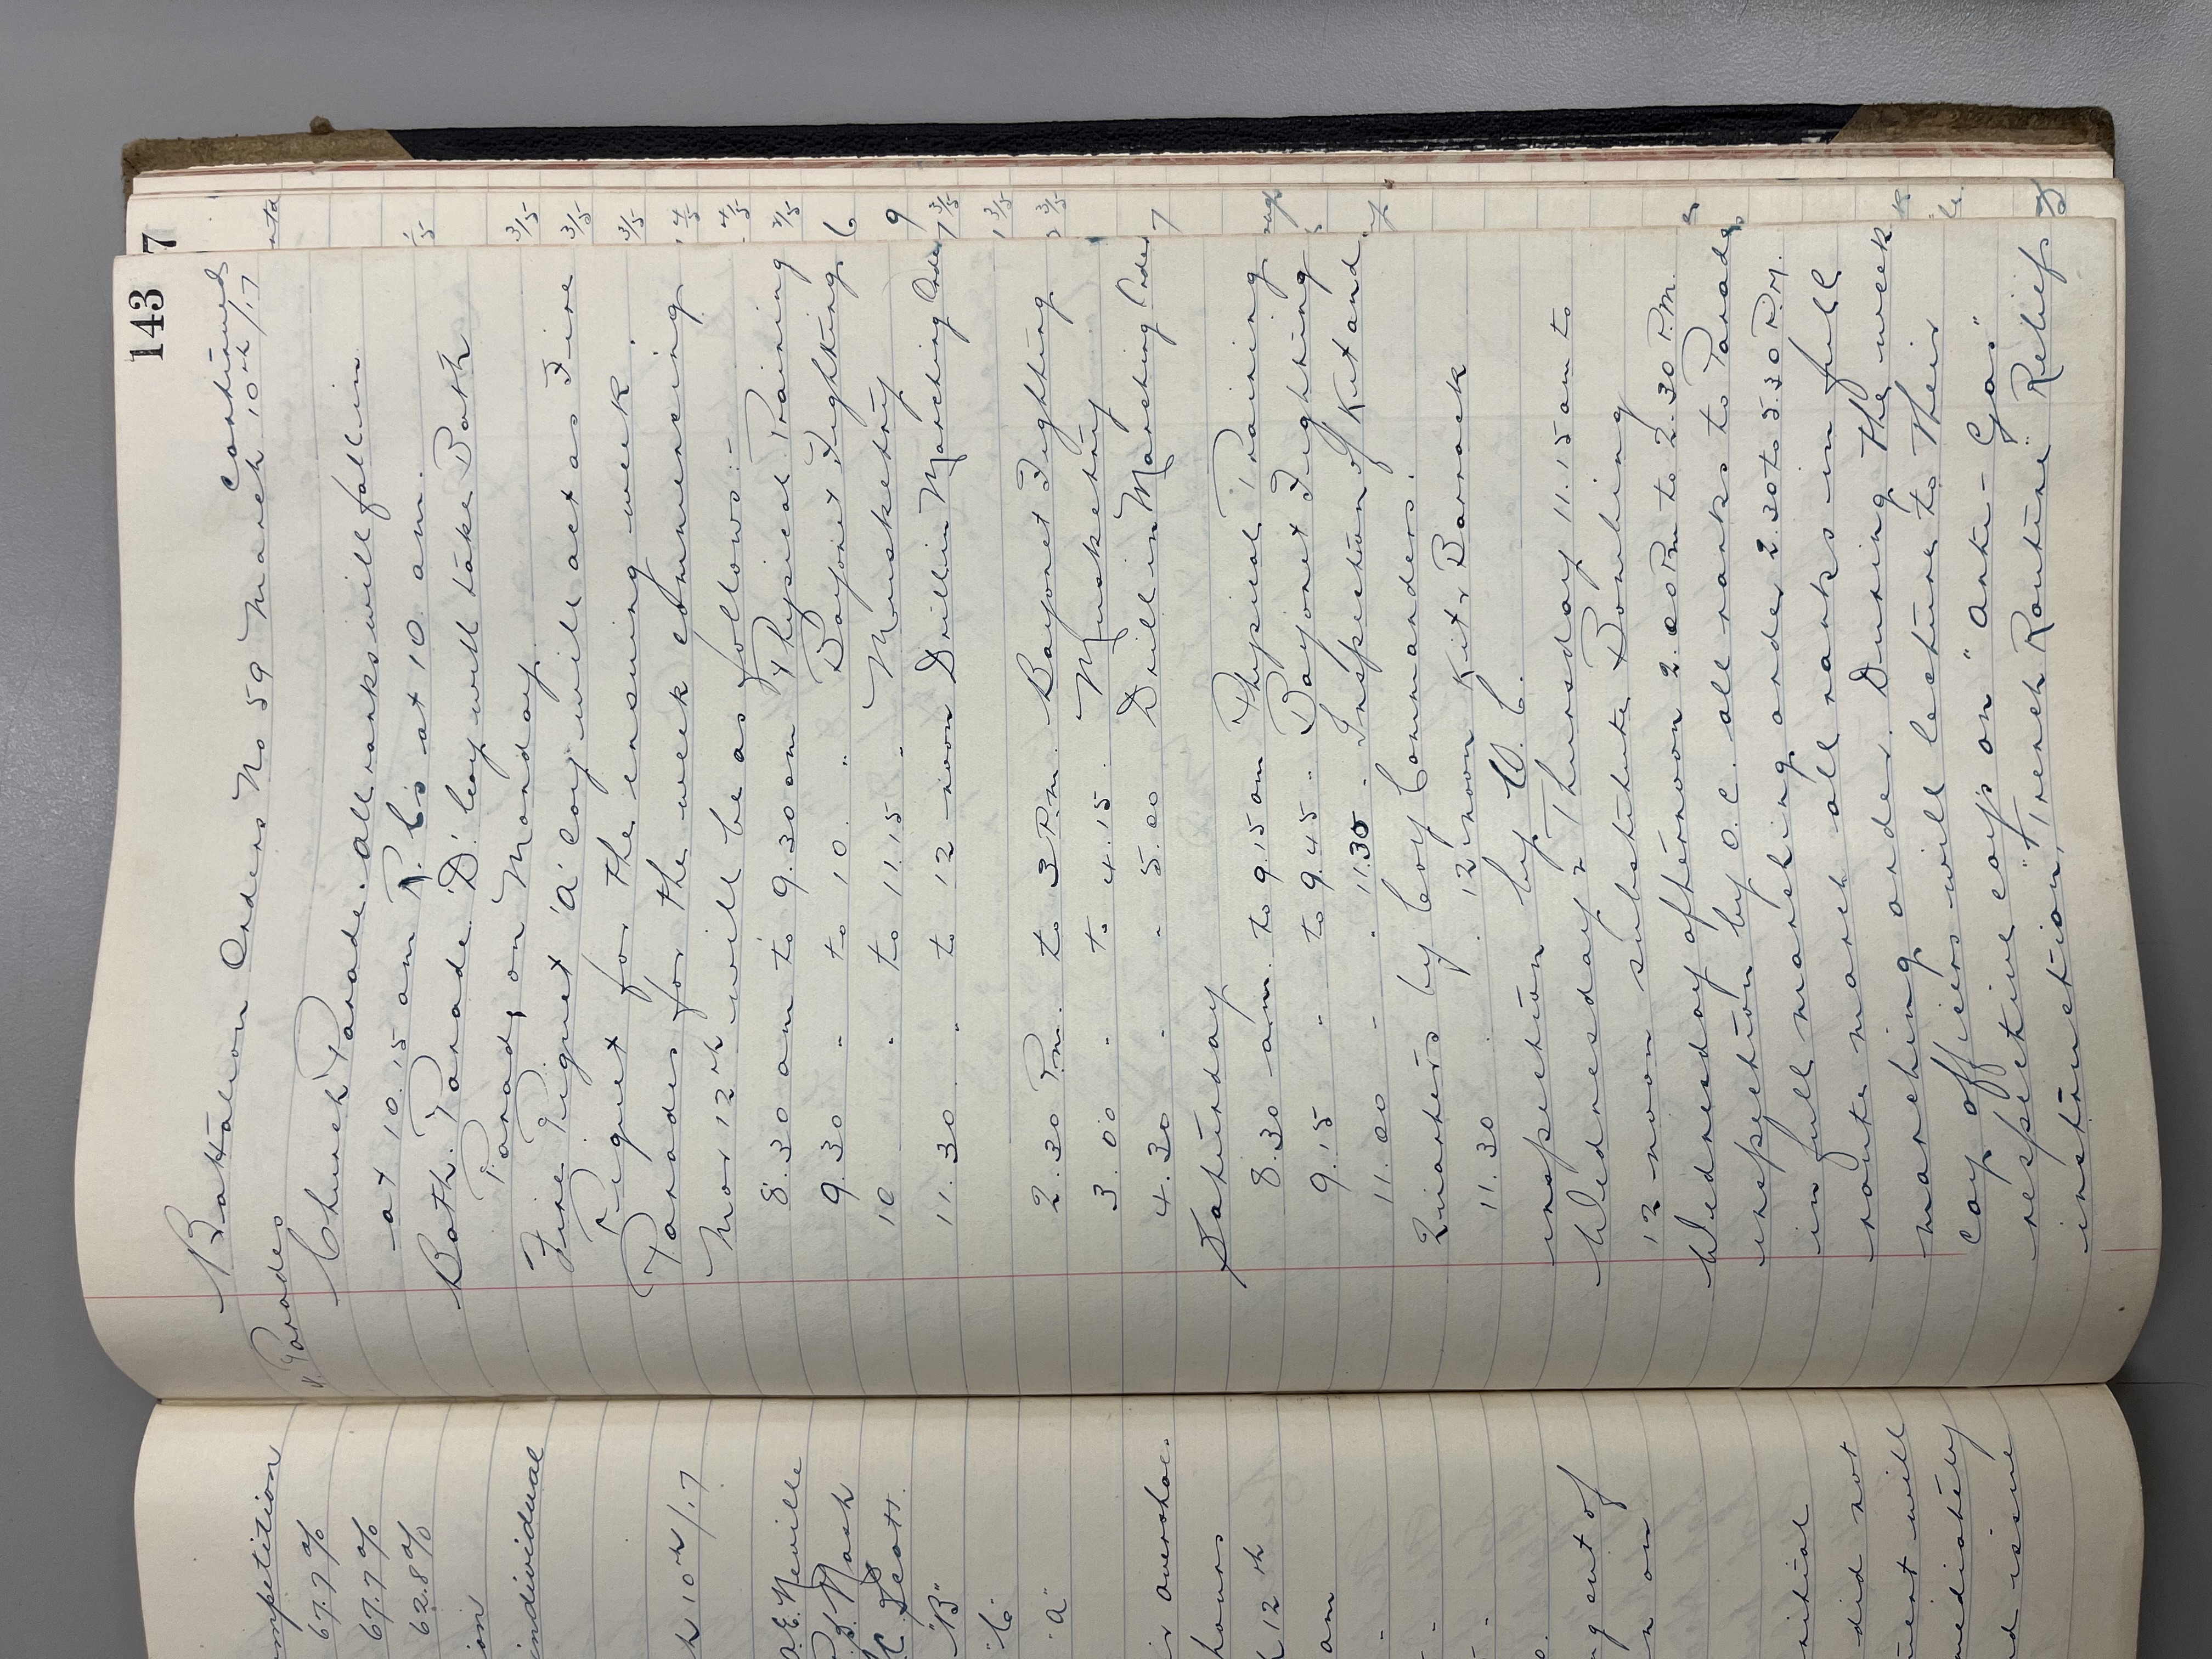 143
Battalion Orders No 59 March 10th/17
Continued
V. Parades
Church Parade. All ranks will fall in
at 10.15 am R.Cs at 10. am.
Bath. Parade. 'D' Coy will take Bath
Parade, on Monday.
Fire Piquet 'A' Coy will act as Fire
Piquet for the ensuing week.
Parades for the week commencing
Mar 12th will be as follows:-
8.30 am to 9.30 am Physical Training
9.30 " to 10. " Bayonet Fighting.
10 " to 11.15 " Musketry
11.30 " to 12 noon Drill in Marching Order
2.30 Pm. to 3 P.m. Bayonet Fighting
3.00 " to 4.15. Musketry
4.30 " " 5.00 Drill in Marching Order
Saturday
8.30 am. to 9.15 am Physical Training
9.15 " to 9.45 " Bayonet Fighting
11.00 " " 11.30 " Inspection of Kit and
Quarters by Coy Commanders.
11.30 " " 12 noon Kit & Barrack
inspection by C.O.
Wednesday & Thursday 11.15 am to
12 noon substitute Bombing
Wednesday afternoon 2.00 Pm to 2.30 P.m.
inspection by O.C. all ranks to Parade
in full marching order 2.30 to 5.30 P.M.
route march all ranks in full
marching order. During the week
Coy officers will lecture to their
respective coys on "Anti-Gas"
"Trench Routine" Relief
instruction,
67.7%
67.7%
62.8%
individual
10th/17
Neville
Nash
Scott.
"B"
"C"
"A"
hours
12th
am
out of
on
did not
will
issue